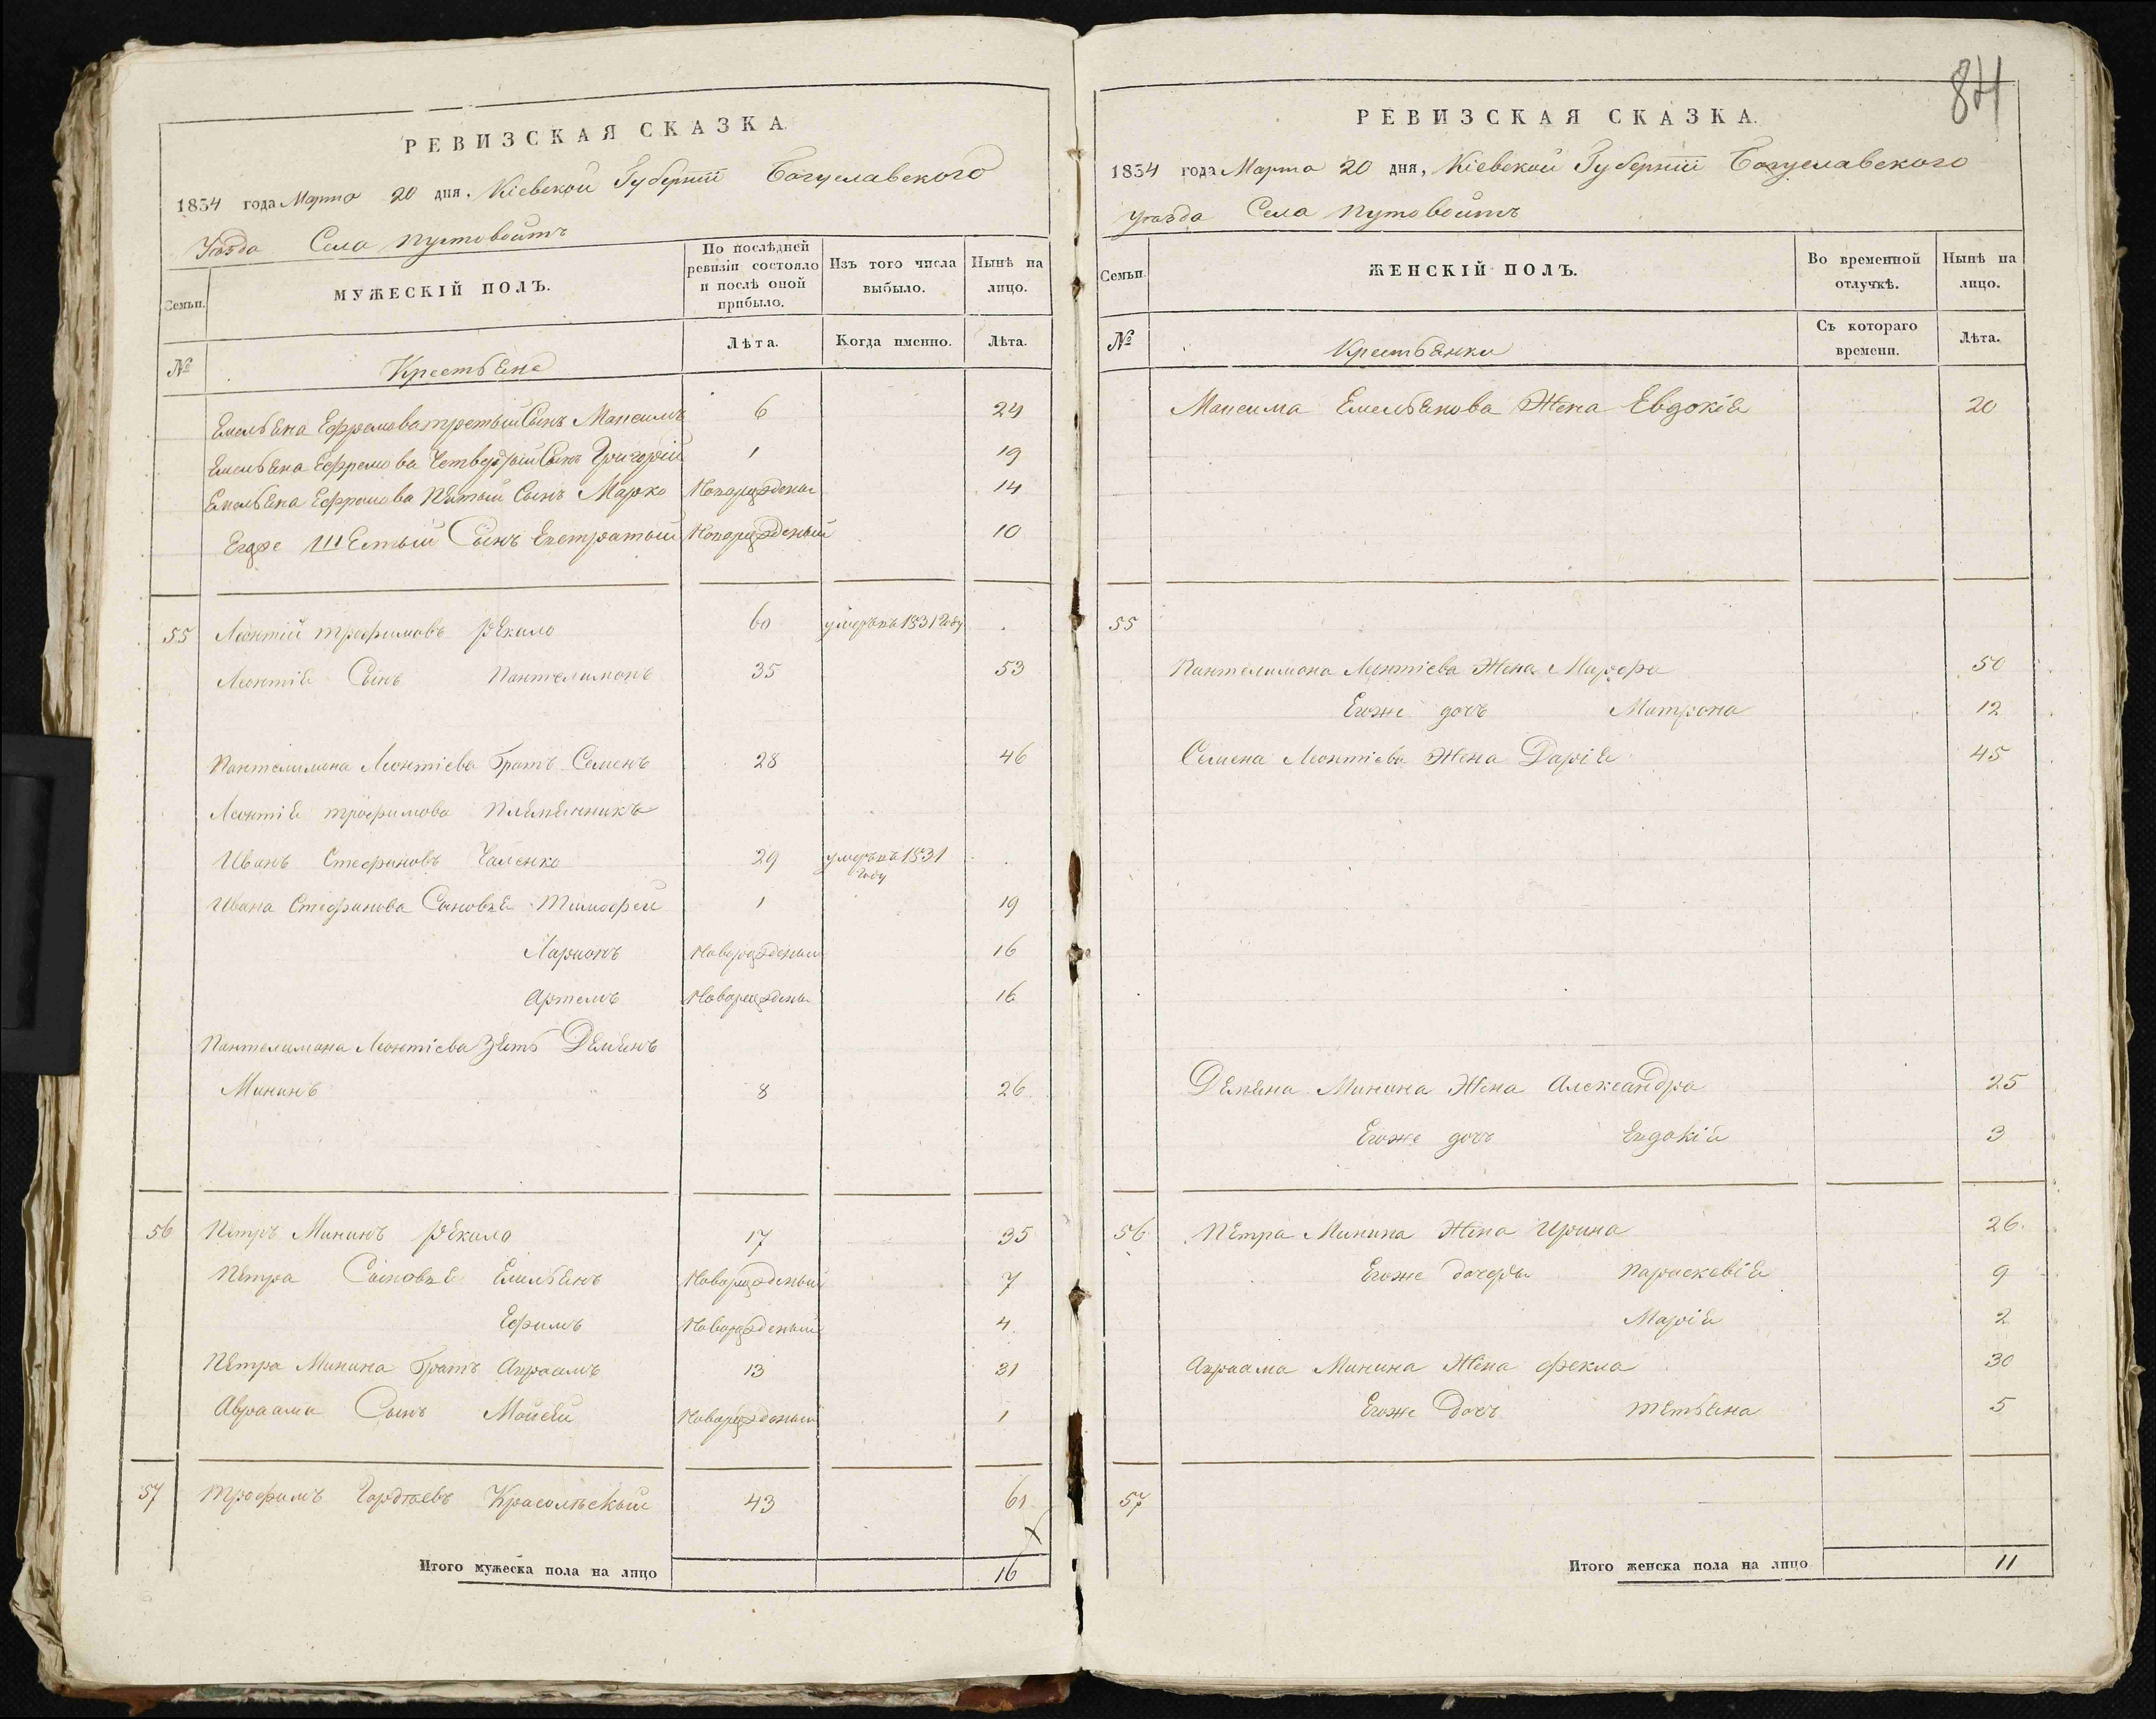 РЕВИЗСКАЯ СКАЗКА.
1834 года Марта 20 дня, Кіевской Губерніи Богуславского
Уѣзда Села Пустовойтъ
Семьи.
МУЖЕСКІЙ ПОЛЪ.
По послѣдней ревизіи состояло и послѣ оной прибыло.
Изъ того числа выбыло.
Нынѣ на лицо.
№
Крестьяне
Лѣта.
Когда именно.
Лѣта.
Емельяна Ефремова третый Сынъ Максимъ 6 24
Емельяна Ефремова Четвертый Сынъ Григорій 1 19
Емельяна Ефремова Пятый Сынъ Марко 14
Егоже Шестый Сынъ 10
55 Леонтій трофимовъ Рекало 60 умеръ въ 1831 году
Леонтія Сынъ Пантелимонъ 35 53
Пантелимона Леонтіева Братъ Семенъ 28 46
Леонтія трофимова Племянникъ
Иванъ Стефановъ 29 умеръ въ 1831 году
Ивана Стефанова Сыновья Тимофей 1 19
Ларионъ 16
Артемъ 16
Пантелимона Леонтіева Зять Демянъ
Мининъ 8 26
56 Петръ Мининъ Рекало 17 35
Петра Сыновья Емельянъ 7
Ефимъ 4
Петра Минина Братъ Авраамъ 13 31
Авраама Сынъ Мойсей 1
57 трофимъ Гордѣевъ 43 61
Итого мужеска пола на лицо 16
84
РЕВИЗСКАЯ СКАЗКА.
1834 года Марта 20 дня, Кіевской Губерніи Богуславского
Уѣзда Села Пустовойтъ
Семьи.
ЖЕНСКІЙ ПОЛЪ.
Во временной отлучкѣ.
Нынѣ на лицо.
№
Крестьянки
Съ котораго времени.
Лѣта.
Максима Емельянова Жена Евдокія 20
55
Пантелимона Леонтіева Жена Марфа 50
Егоже дочь Матрона 12
Семена Леонтіева Жена Дарія 45
Демяна Минина Жена Александра 25
Егоже дочь Евдокія 3
56 Петра Минина Жена Ирина 26
Егоже дочеры Параскевія 9
Марія 2
Авраама Минина Жена Фекла 30
Егоже Дочь тетьяна 5
57
Итого женска пола на лицо 11